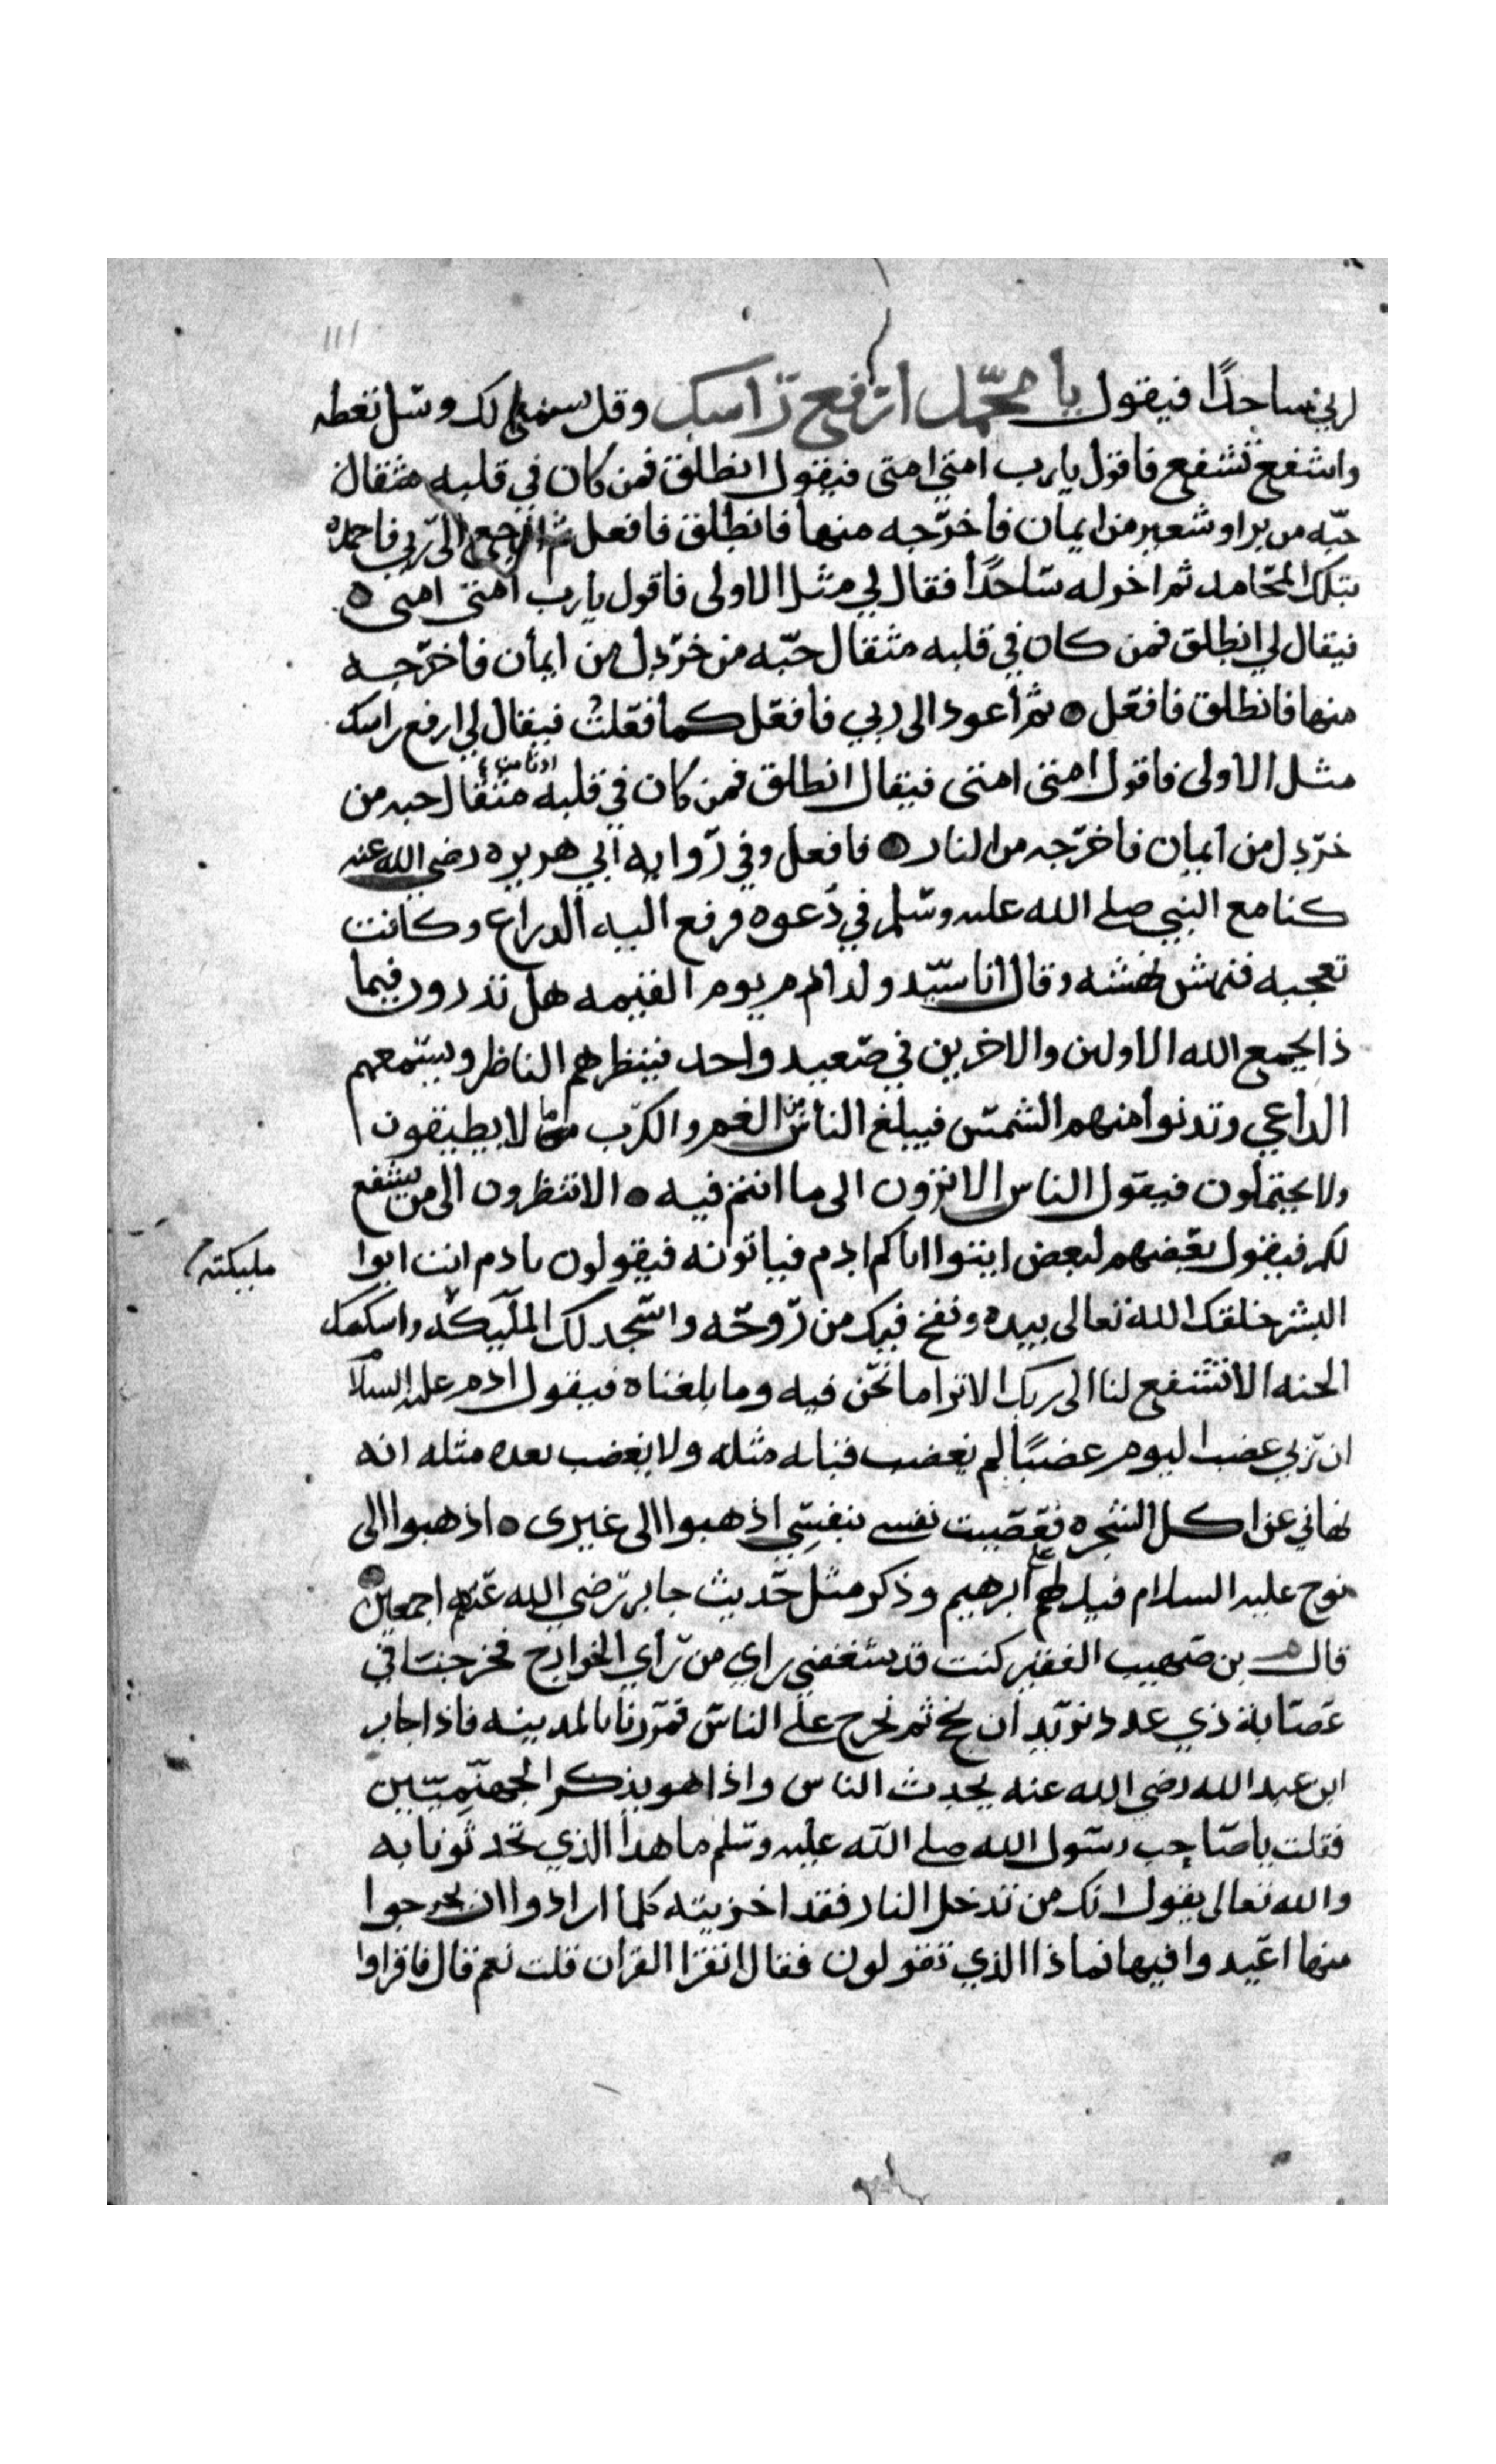 ١١١
لربي ساجدًا فيقول يا محمّد ارفع راسك وقل يسمع لك وسل تعطه
واشفع تشفع فاقول يارب امتي امتى فيقول انطلق فمن كان في قلبه مثقال
حبّه من براو شعير من ايمان فأخرّجه منها فانطلق فافعل ثم ارجع الى ربي فاحمده
بتلك المحامد ثم اخر له ساجدًا فقال لي مثل الاولى فاقول يارب امتى امتى ه
فيقال لي انطلق فمن كان في قلبه مثقال حبّه من خردل من ايمان فأخرّجه
منها فانطلق فافعل ه ثم أعود الى ربي فافعل كما فعلت فيقال لي ارفع راسك
مثل الاولى فاقول امتى امتى فيقال انطلق فمن كان في قلبه ادنا من مثقال حبه من
خردل من ايمان فاخرّجه من النار ه فافعل وفي روايه ابي هريره رضي الله عنه
كنا مع النبي صلى الله عليه وسلم في دعوه فرفع اليه الدراع وكانت
تعجبه فنهش نهشه وقال انا سيّد ولد ادم يوم القيمه هل تدرون فيما
ذا يجمع الله الاولين والاخرين في صعيد واحد فينظرهم الناظر ويسمعهم
الداعي وتدنوا منهم الشمس فيبلغ الناس من الغم والكرب ما لا يطيقون
ولا يحتملون فيقول الناس الا ترون الى ما انتم فيه ه الا تنظرون الى من يشفع
لكم فيقول بعضهم لبعض ايتوا اباكم ادم فياتونه فيقولون يادم انت ابوا
مليكته
البشر خلقك الله تعالى بيده ونفخ فيك من روحه واسجد لك المليكه واسكنك
الجنه الا تشفع لنا الى ربك الا ترا ما نحن فيه وما بلغناه فيقول ادم عليه السلام
ان ربي غضب اليوم غضبًا لم يغضب قبله مثله ولا يغضب بعده مثله انه
نهاني عن اكل الشجره فعصيت نفسي نفسي اذهبوا الى غيرى ه اذهبوا الى
نوح عليه السلام فيدلهم على ابرهيم وذكر مثل حديث جابر رضي الله عنهم اجمعين
قال بن صهيب الفقير كنت قد شغفني راي من رأي الخوارج فخرجنا في
عصابة ذي عدد نريد ان نحج ثم نخرج على الناس فمررنا بالمدينه فاذا جابر
ابن عبد الله رضي الله عنه يحدث الناس واذا هو يذكر الجهنميين
فقلت يا صاحب رسول الله صلى الله عليه وسلم ما هذا الذي تحدثونا به
والله تعالى يقول انك من تدخل النار فقد اخزيته كلما ارادوا ان يخرجوا
منها اعيدوا فيها فماذا الذي تقولون فقال اتقرا القران قلت نعم قال فاقراوا